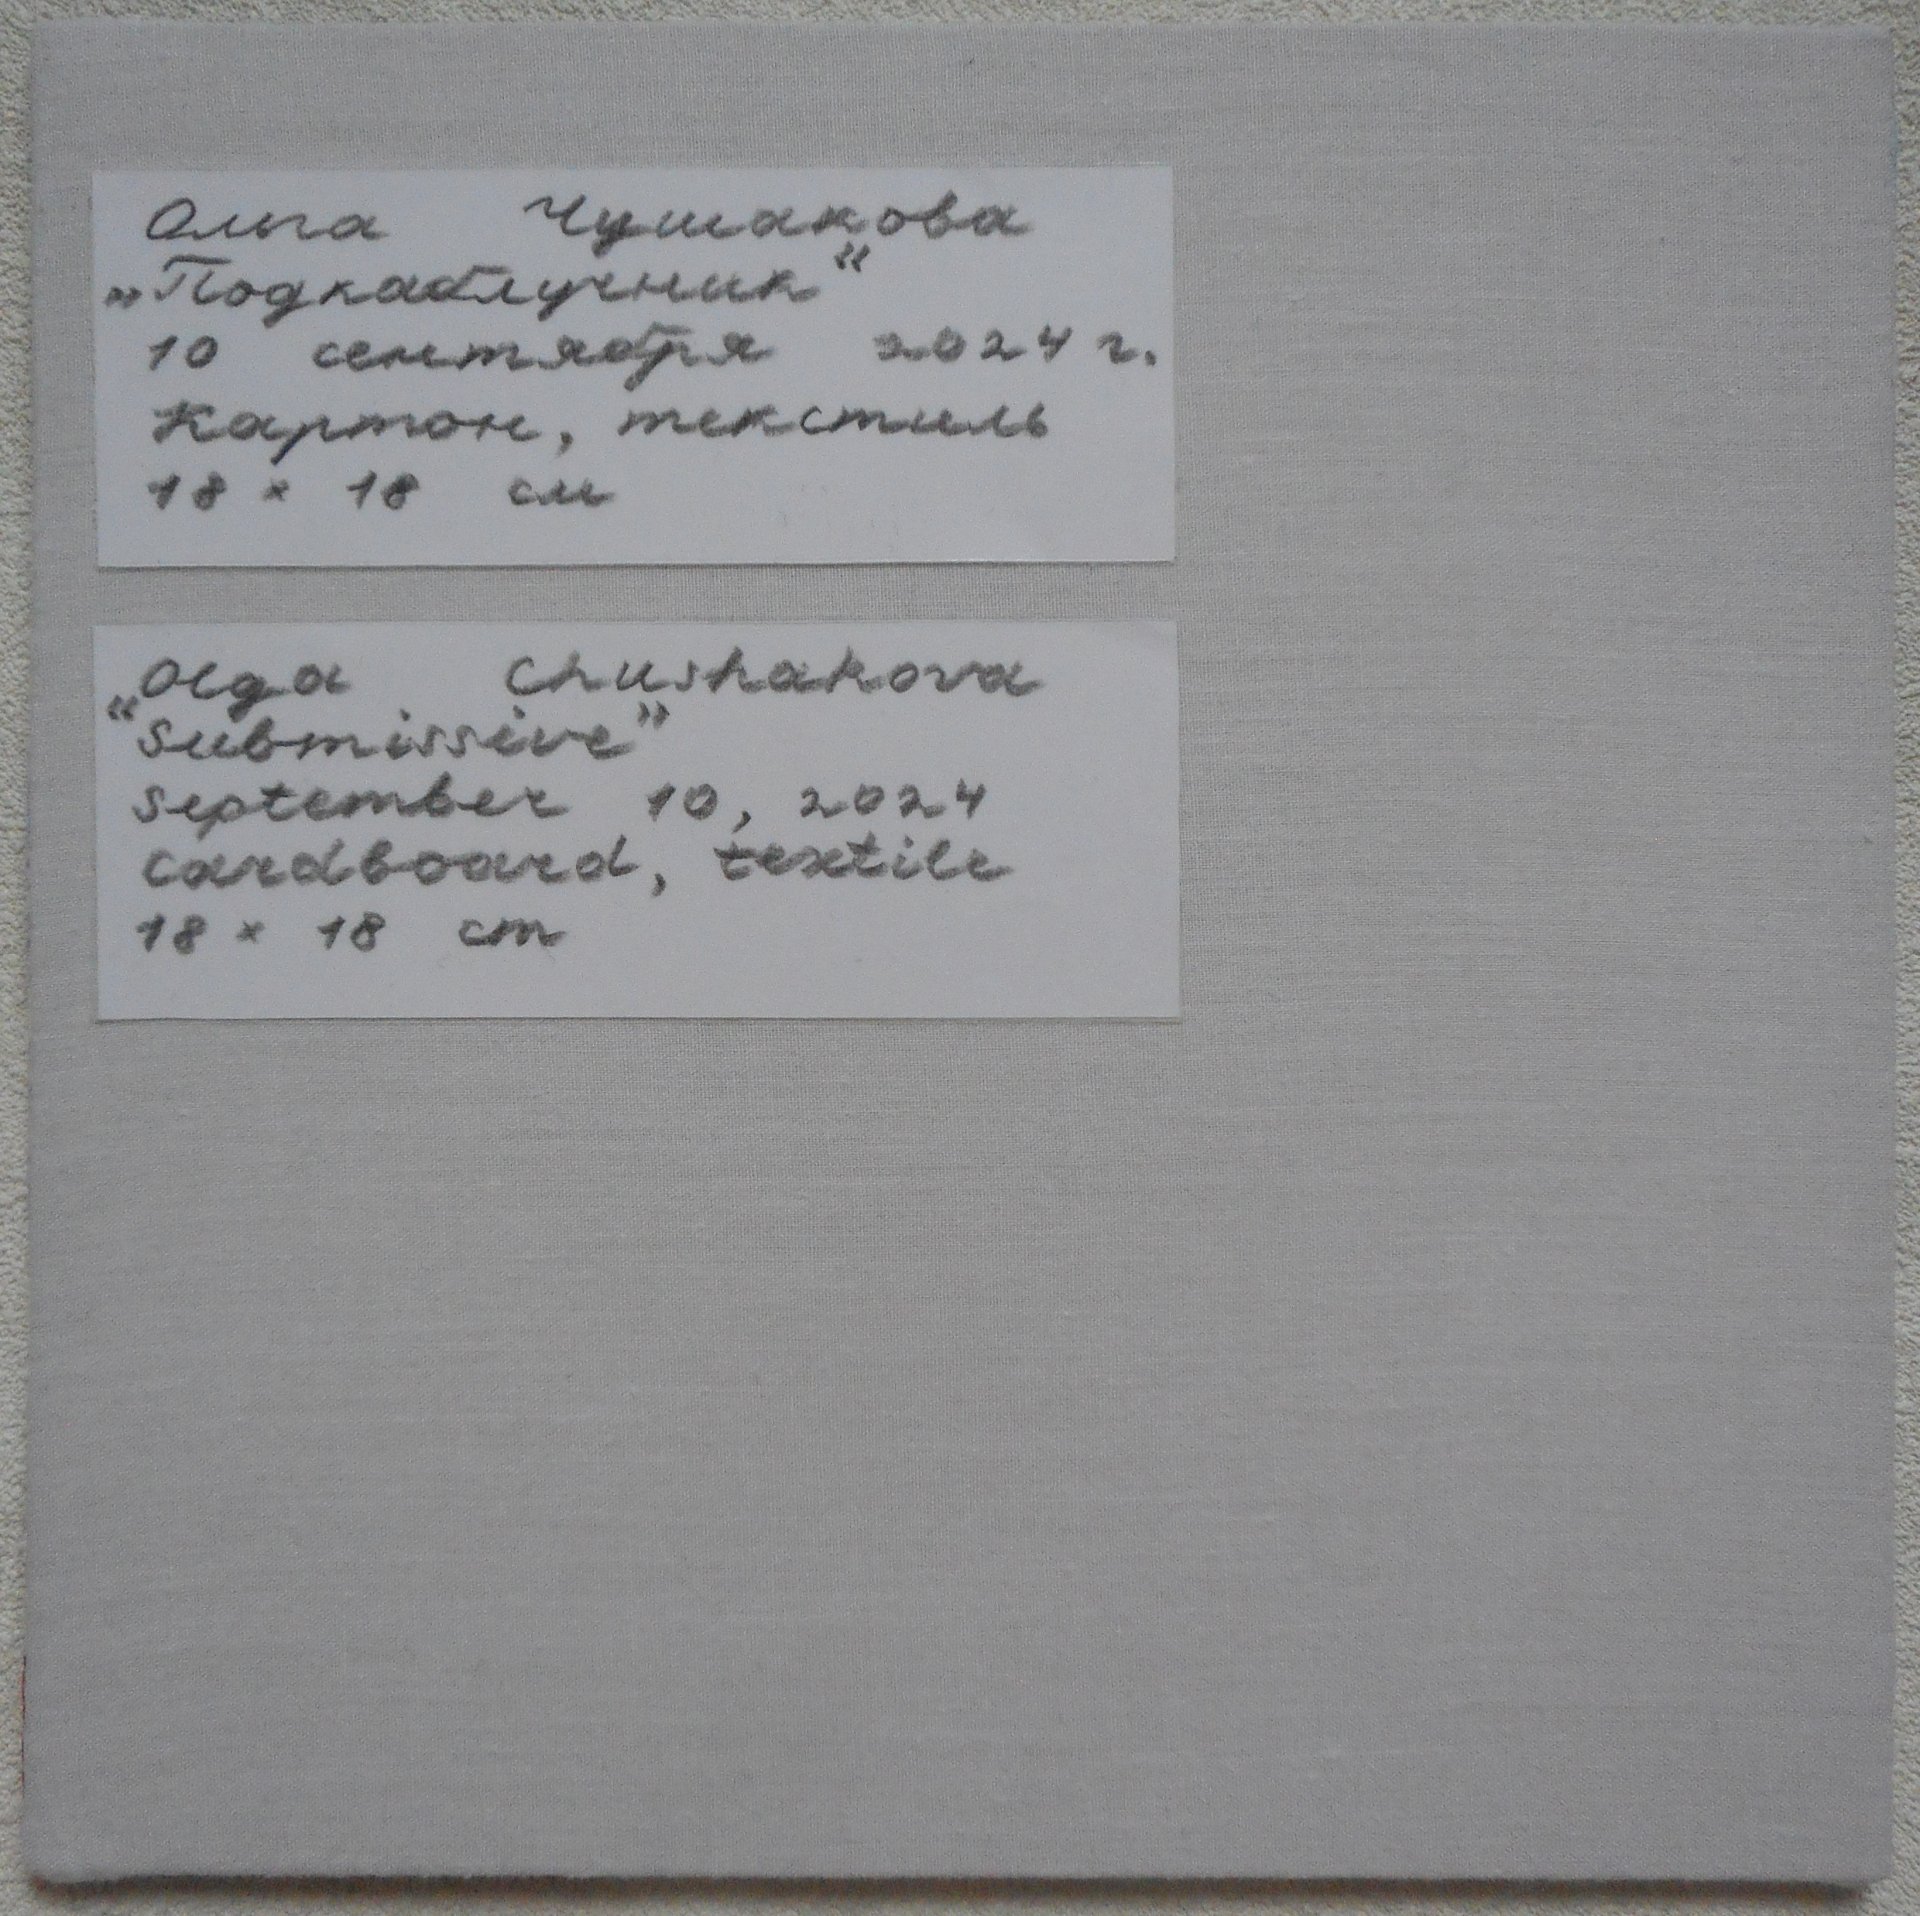 Ольга Чушакова
„Подкаблучник“
10 сентября 2024 г.
Картон, текстиль
18 × 18 см
Olga Chushakova
“Submissive”
September 10, 2024
Cardboard, textile
18 × 18 cm